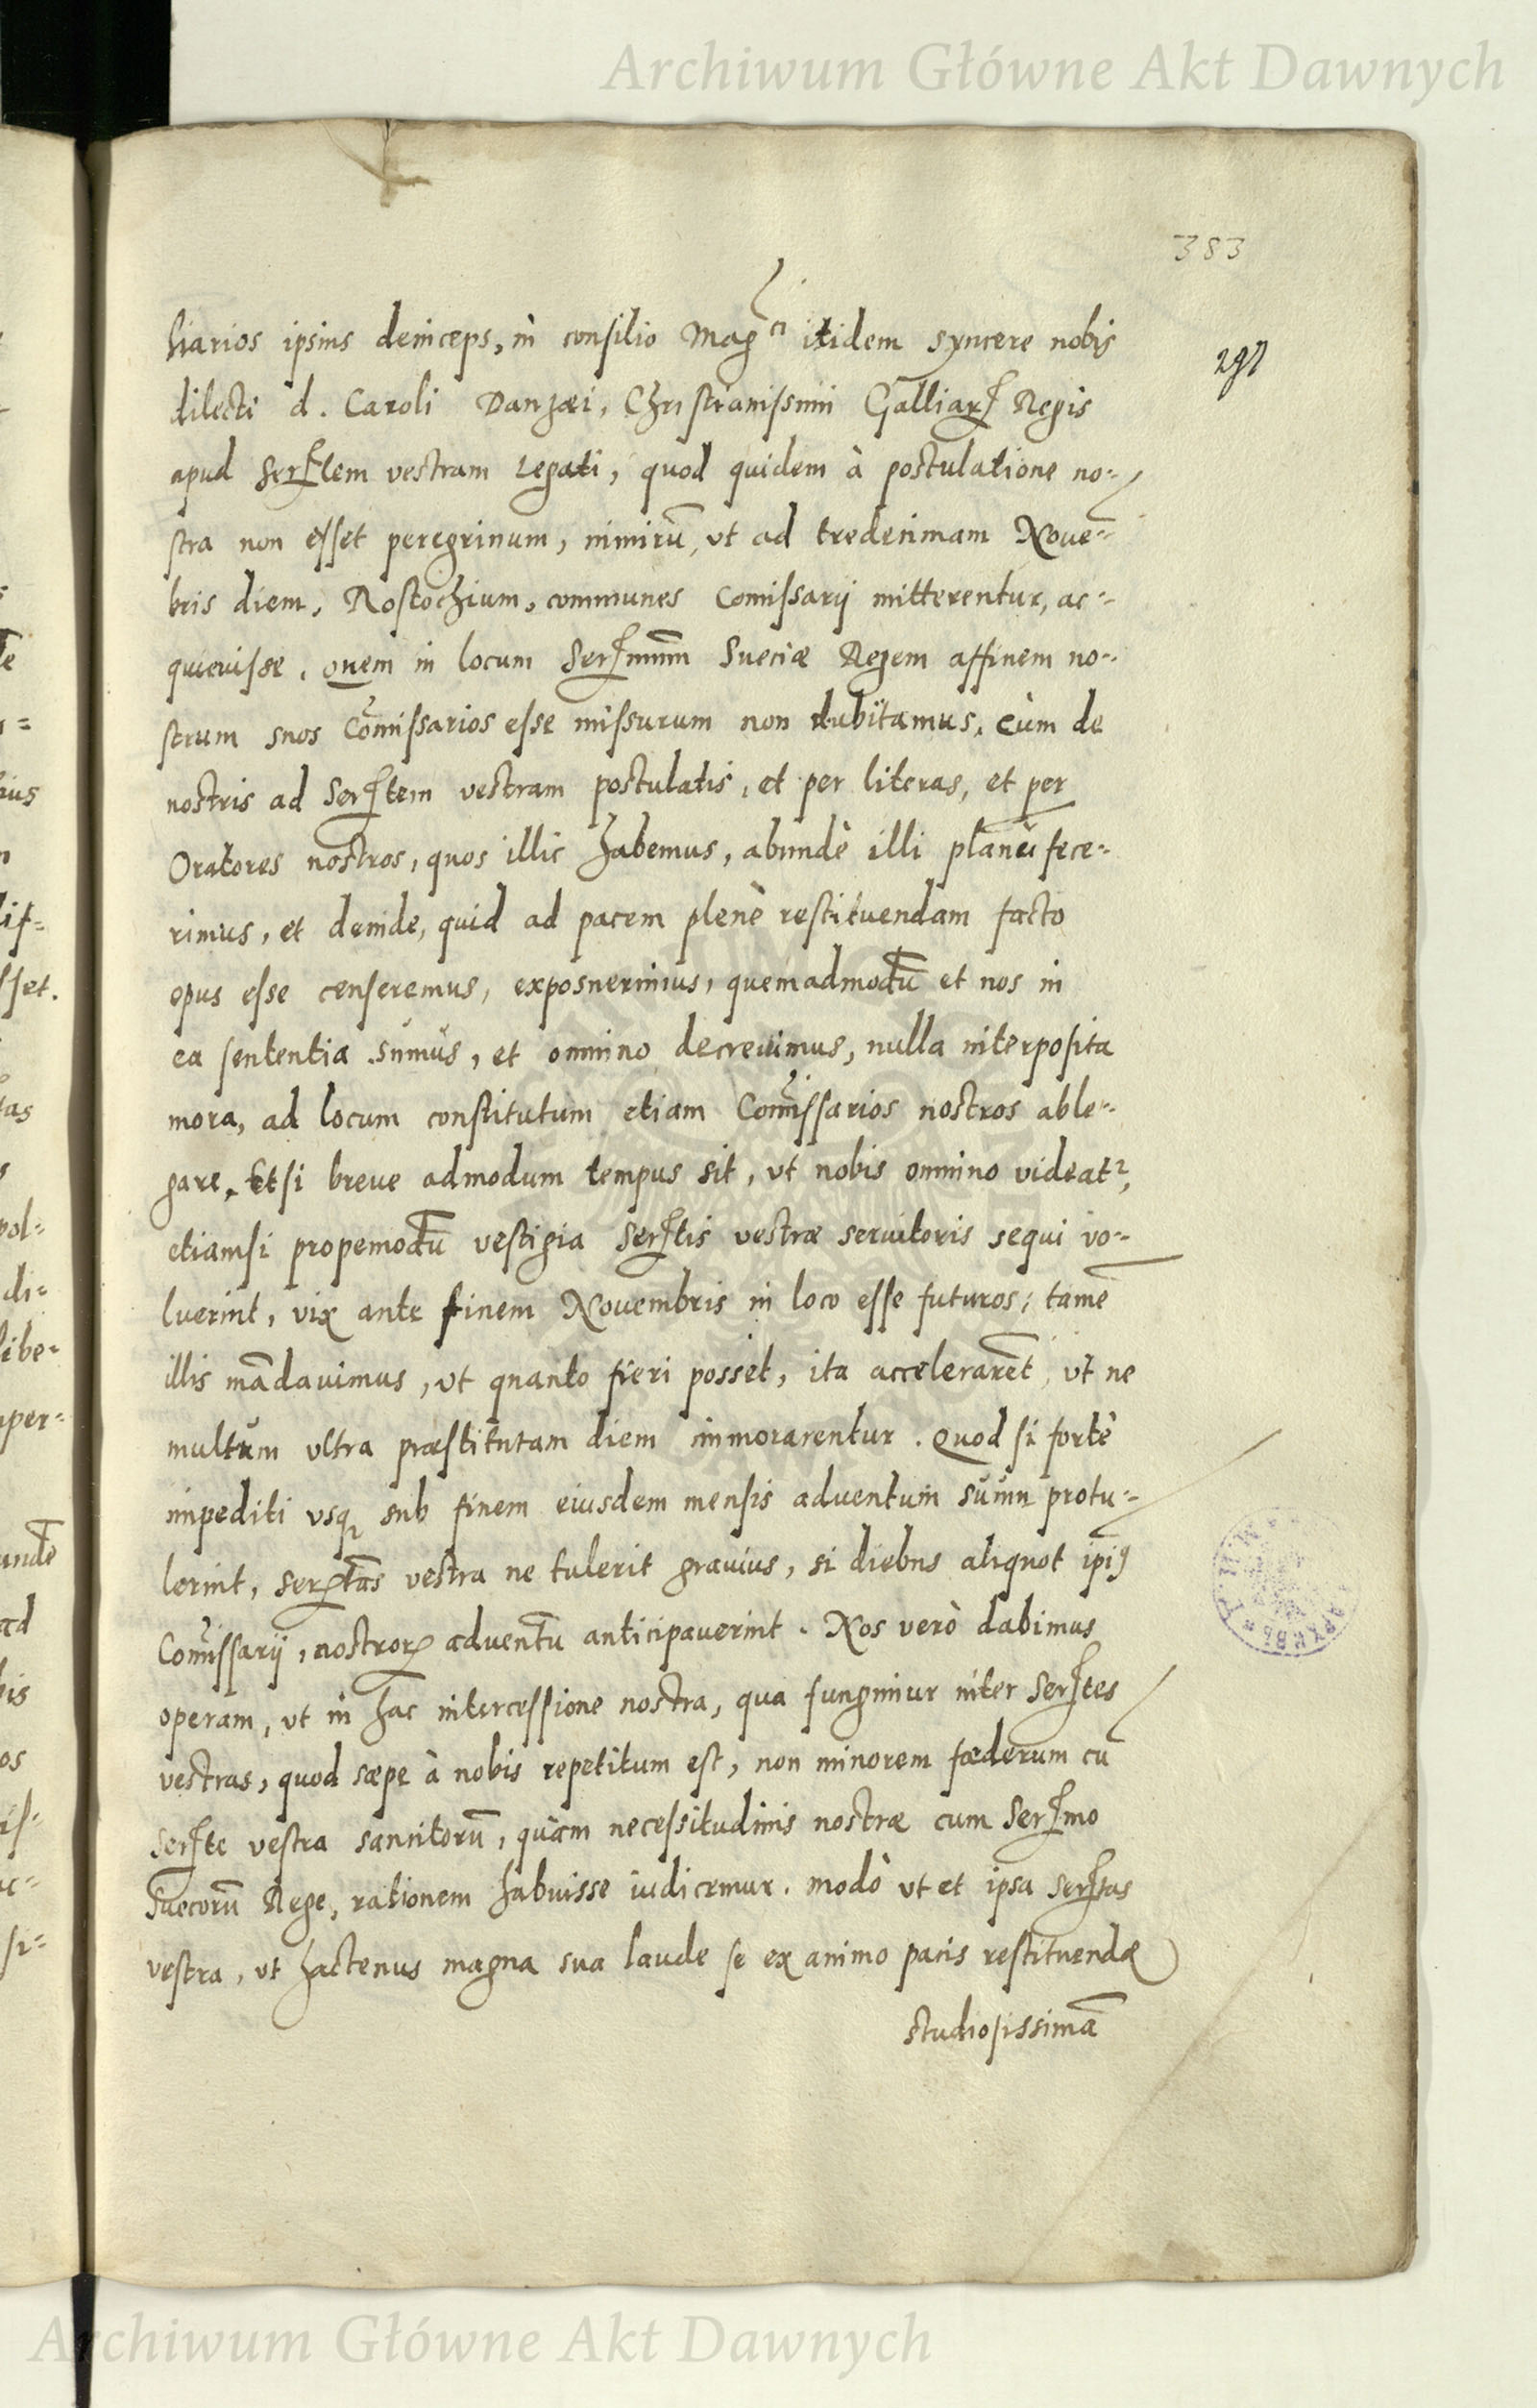 Archiwum Główne Akt Dawnych
383
297
liarios ipsius deinceps, in consilio Mag^ci itidem syncere nobis
dilecti d. Caroli Danzæi, Christianissimi Galliarꝝ Regis
apud Serꝭtem vestram Legati, quod quidem à postulatione no=
stra non esset peregrinum, nimirū, vt ad tredecimam Noue=
bris diem, Rostochium, communes Comissarij mitterentur, ac=
quieuisse. Quem in locum Serꝭmum Sueciæ Regem affinem no=
strum suos Com̃issarios esse missurum non dubitamus, cùm de
nostris ad Serꝭtem vestram postulatis, et per literas, et per
Oratores nostros, quos illic habemus, abundè illi planū fece=
rimus, et deinde, quid ad pacem plenè restituendam facto
opus esse censeremus, exposuerimus, quemadmodū et nos in
ea sententia sumus, et omnino decreuimus, nulla interposita
mora, ad locum constitutum etiam Com̃issarios nostros able=
gare. Etsi breue admodum tempus sit, vt nobis omnino videat²,
etiamsi propemodū vestigia Serꝭtis vestræ seruitoris sequi vo=
luerint, vix ante finem Nouembris in loco esse futuros; tamē
illis mādauimus, vt quanto fieri posset, ita accelerarēt, vt ne
multum vltra præstitutam diem immorarentur. Quod si fortè
impediti vsqꝫ sub finem eiusdem mensis aduentum suum protu=
lerint, Serꝭtas vestra ne tulerit grauius, si diebus aliquot ipiꝰ
Com̃issarij, nostrorꝝ aduentū anticipauerint. Nos verò dabimus
operam, vt in hac intercessione nostra, qua fungimur inter Serꝭtes
vestras, quod sæpe à nobis repetitum est, non minorem fœderum cū
Serꝭte vestra sancitorū, quàm necessitudinis nostræ cum Serꝭmo
Suecorū Rege, rationem habuisse iudicemur. modò vt et ipsa Serꝭtas
vestra, vt hactenus magna sua laude se ex animo pacis restituendæ
studiosissimā
Archiwum Główne Akt Dawnych